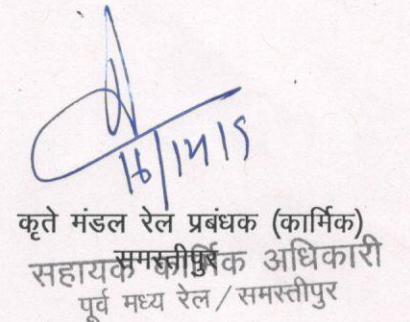 कृते मंडल रेल प्रबंधक (कार्मिक)
समस्तीपुर
सहायक कार्मिक अधिकारी
पूर्व मध्य रेल / समस्तीपुर